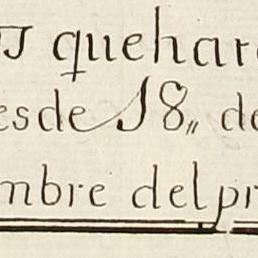 quehar
esde 18,, de
mbre del pr